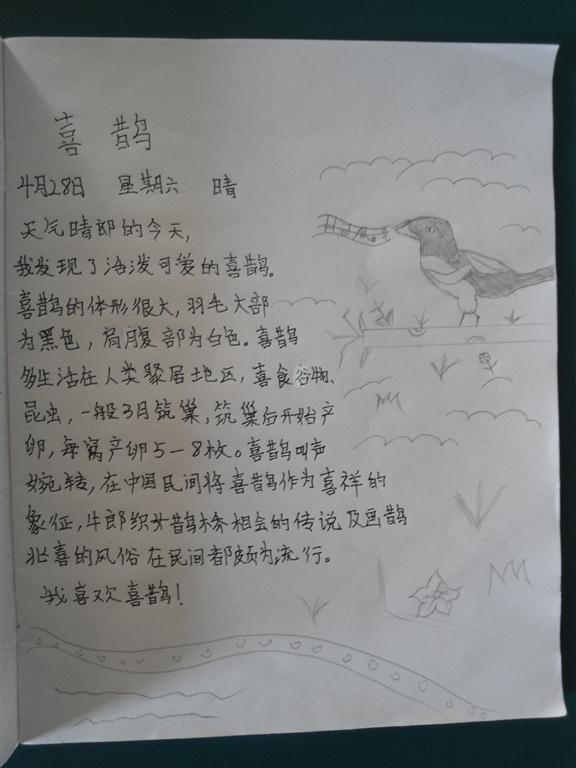 喜鹊
4月28日 星期六 晴
天气晴郎的今天,
我发现了活泼可爱的喜鹊。
喜鹊的体形很大,羽毛大部
为黑色,肩腹部为白色。喜鹊
多生活在人类聚居地区,喜食谷物、
昆虫,一般3月筑巢,筑巢后开始产
卵,每窝产卵5-8枚。喜鹊叫声
婉转,在中国民间将喜鹊作为喜祥的
象征,牛郎织女鹊桥相会的传说及画鹊
兆喜的风俗在民间都颇为流行。
我喜欢喜鹊!